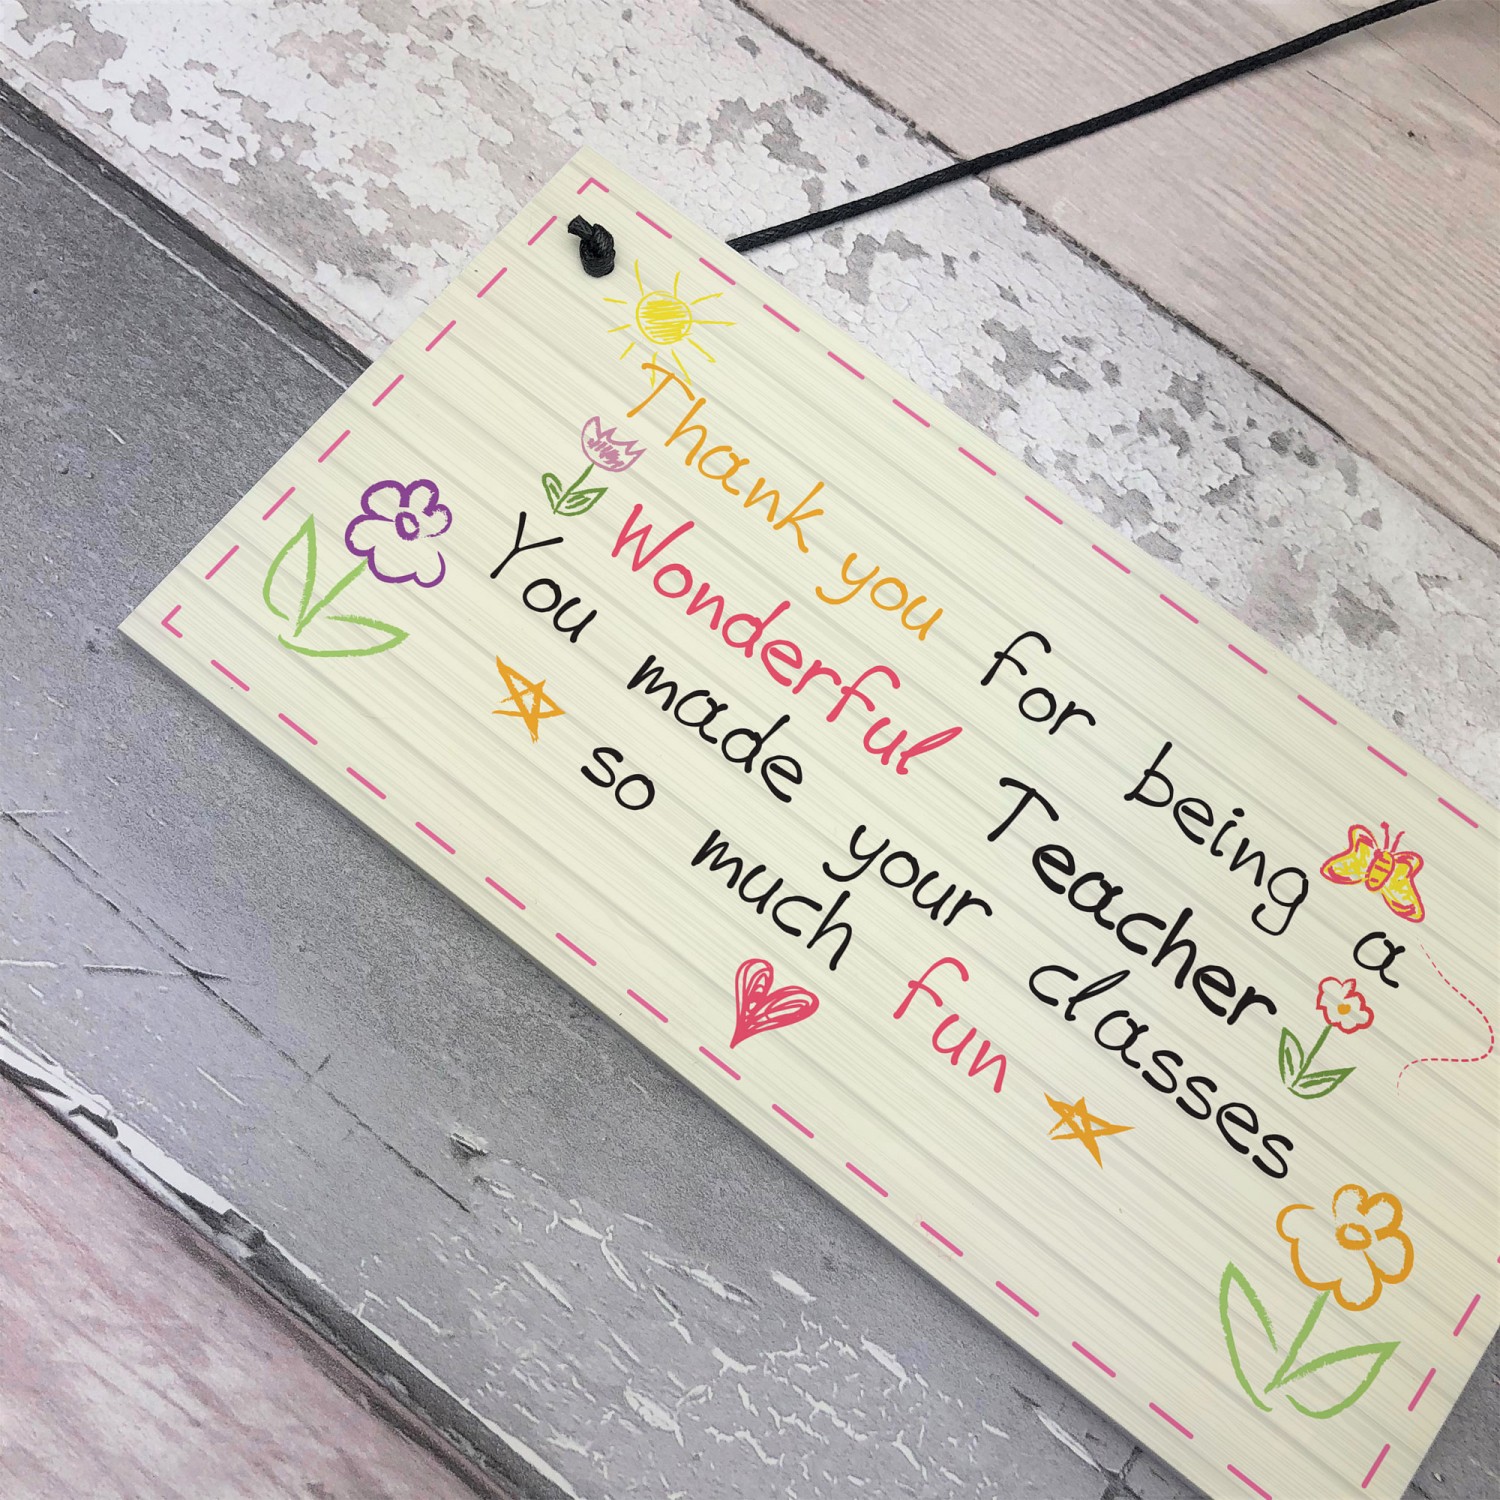 Thank you for being a
Wonderful Teacher
You made your classes
so much fun